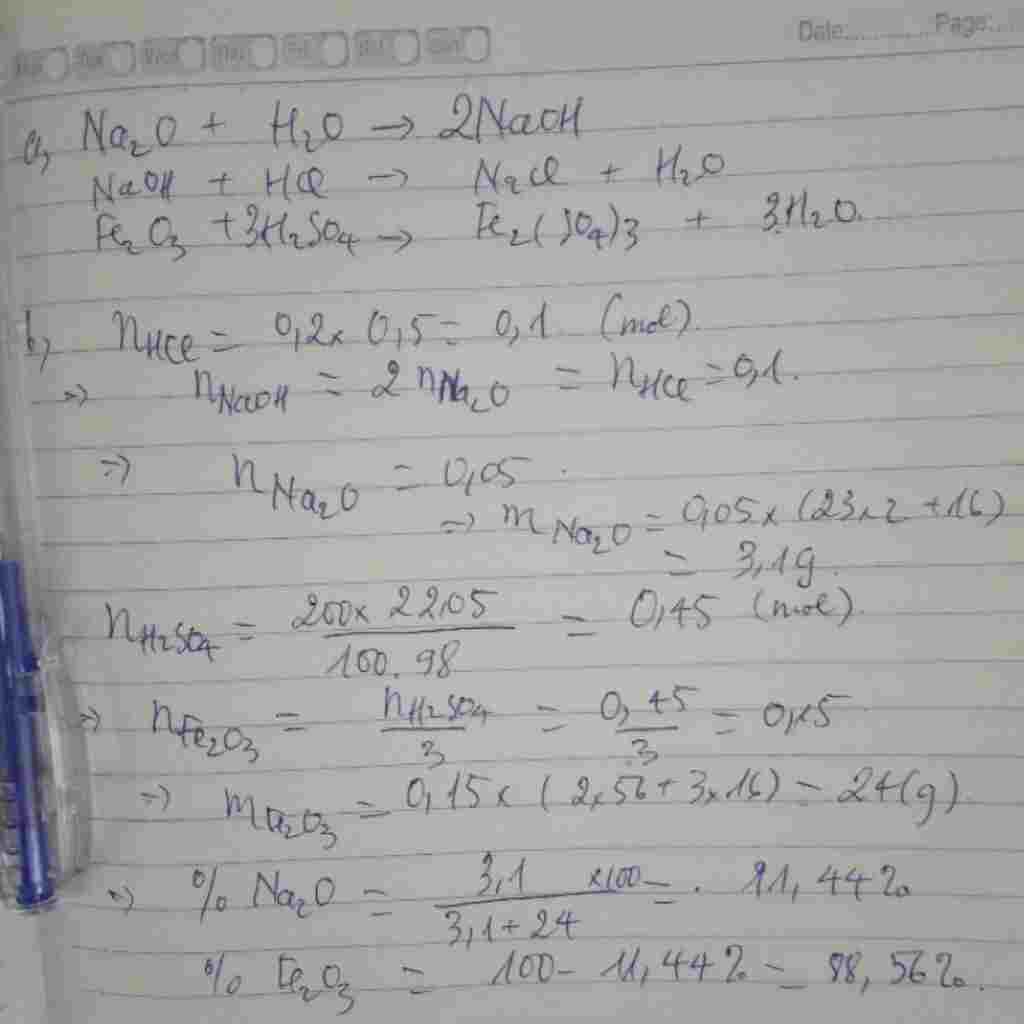 Date:............Page:....
a, Na₂O + H₂O → 2NaOH
NaOH + HCl → NaCl + H₂O
Fe₂O₃ + 3H₂SO₄ → Fe₂(SO₄)₃ + 3H₂O.
b, nHCl = 0,2x 0,5 = 0,1 (mol).
=> nNaOH = 2 nNa₂O = nHCl = 0,1.
=> nNa₂O = 0,05.
=> mNa₂O = 0,05x (23x2 + 16)
= 3,1g.
nH₂SO₄ = 200x 22,05 / 100.98 = 0,45 (mol).
=> nFe₂O₃ = nH₂SO₄ / 3 = 0,45 / 3 = 0,15
=> mFe₂O₃ = 0,15x (2x56 + 3x16) = 24(g).
=> % Na₂O = 3,1 / 3,1+24 x100 = 11,44%
% Fe₂O₃ = 100 - 11,44% = 88,56%.